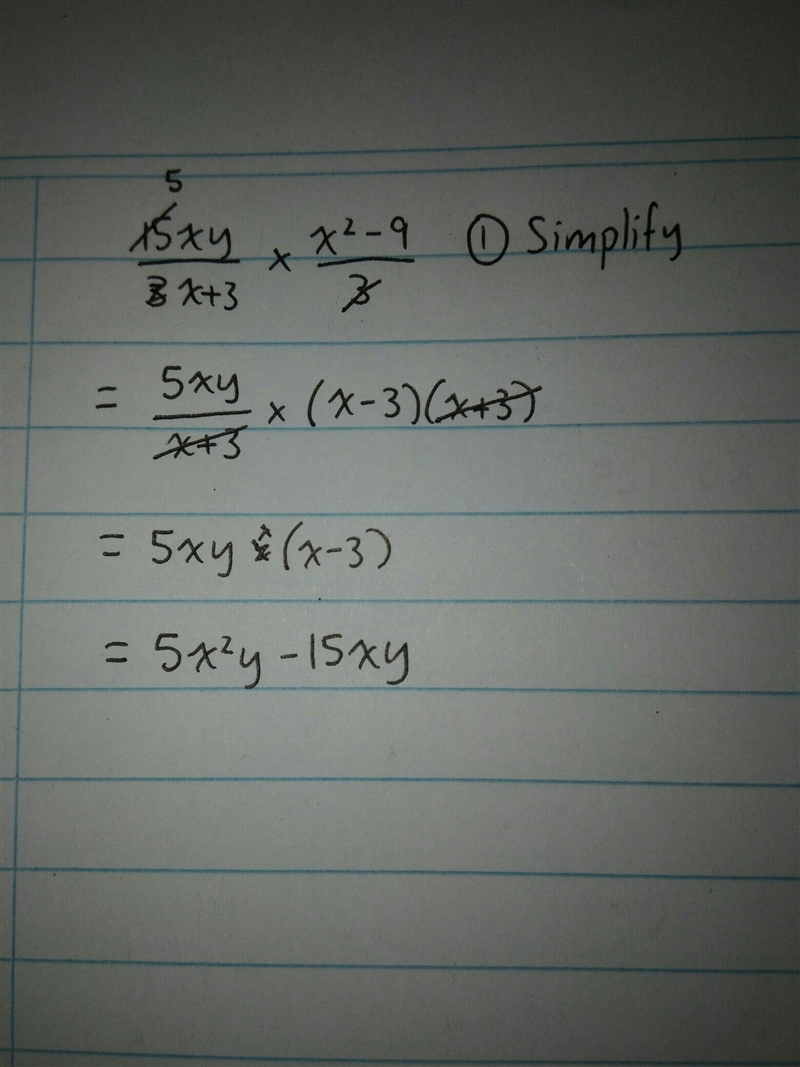 5
15xy/x+3 × x²-9/3 ① Simplify
= 5xy/x+3 × (x-3)(x+3)
= 5xy × (x-3)
= 5x²y - 15xy